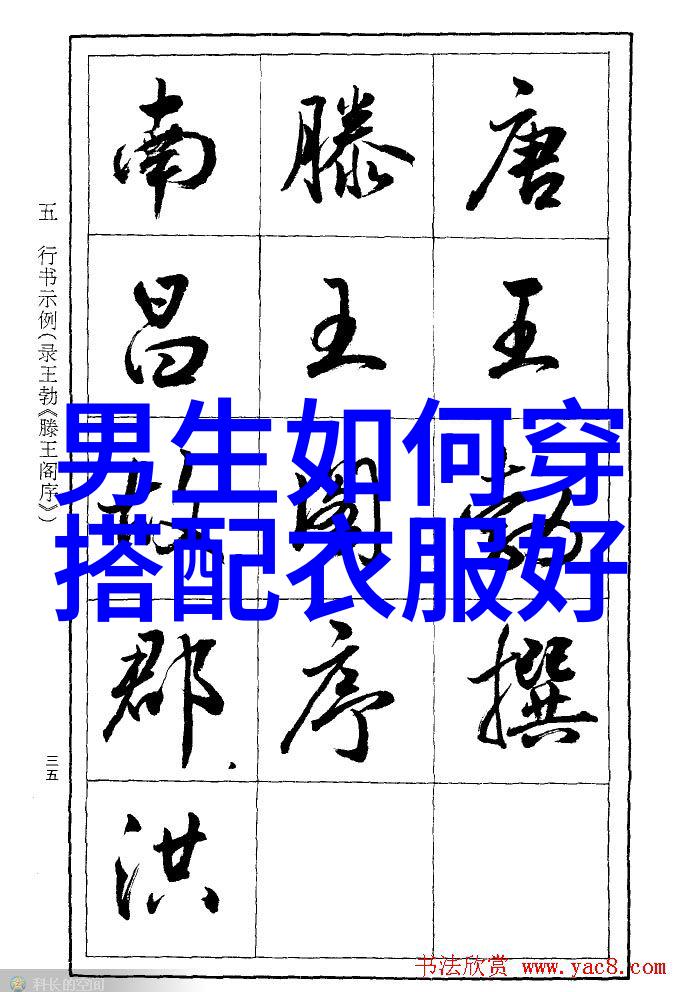 唐王勃撰
滕王阁序
南昌故郡
洪
五 行书示例(录王勃《滕王阁序》)
三五
男生如何穿
搭配衣服好
书法欣赏 www.yac8.com
科长的空间